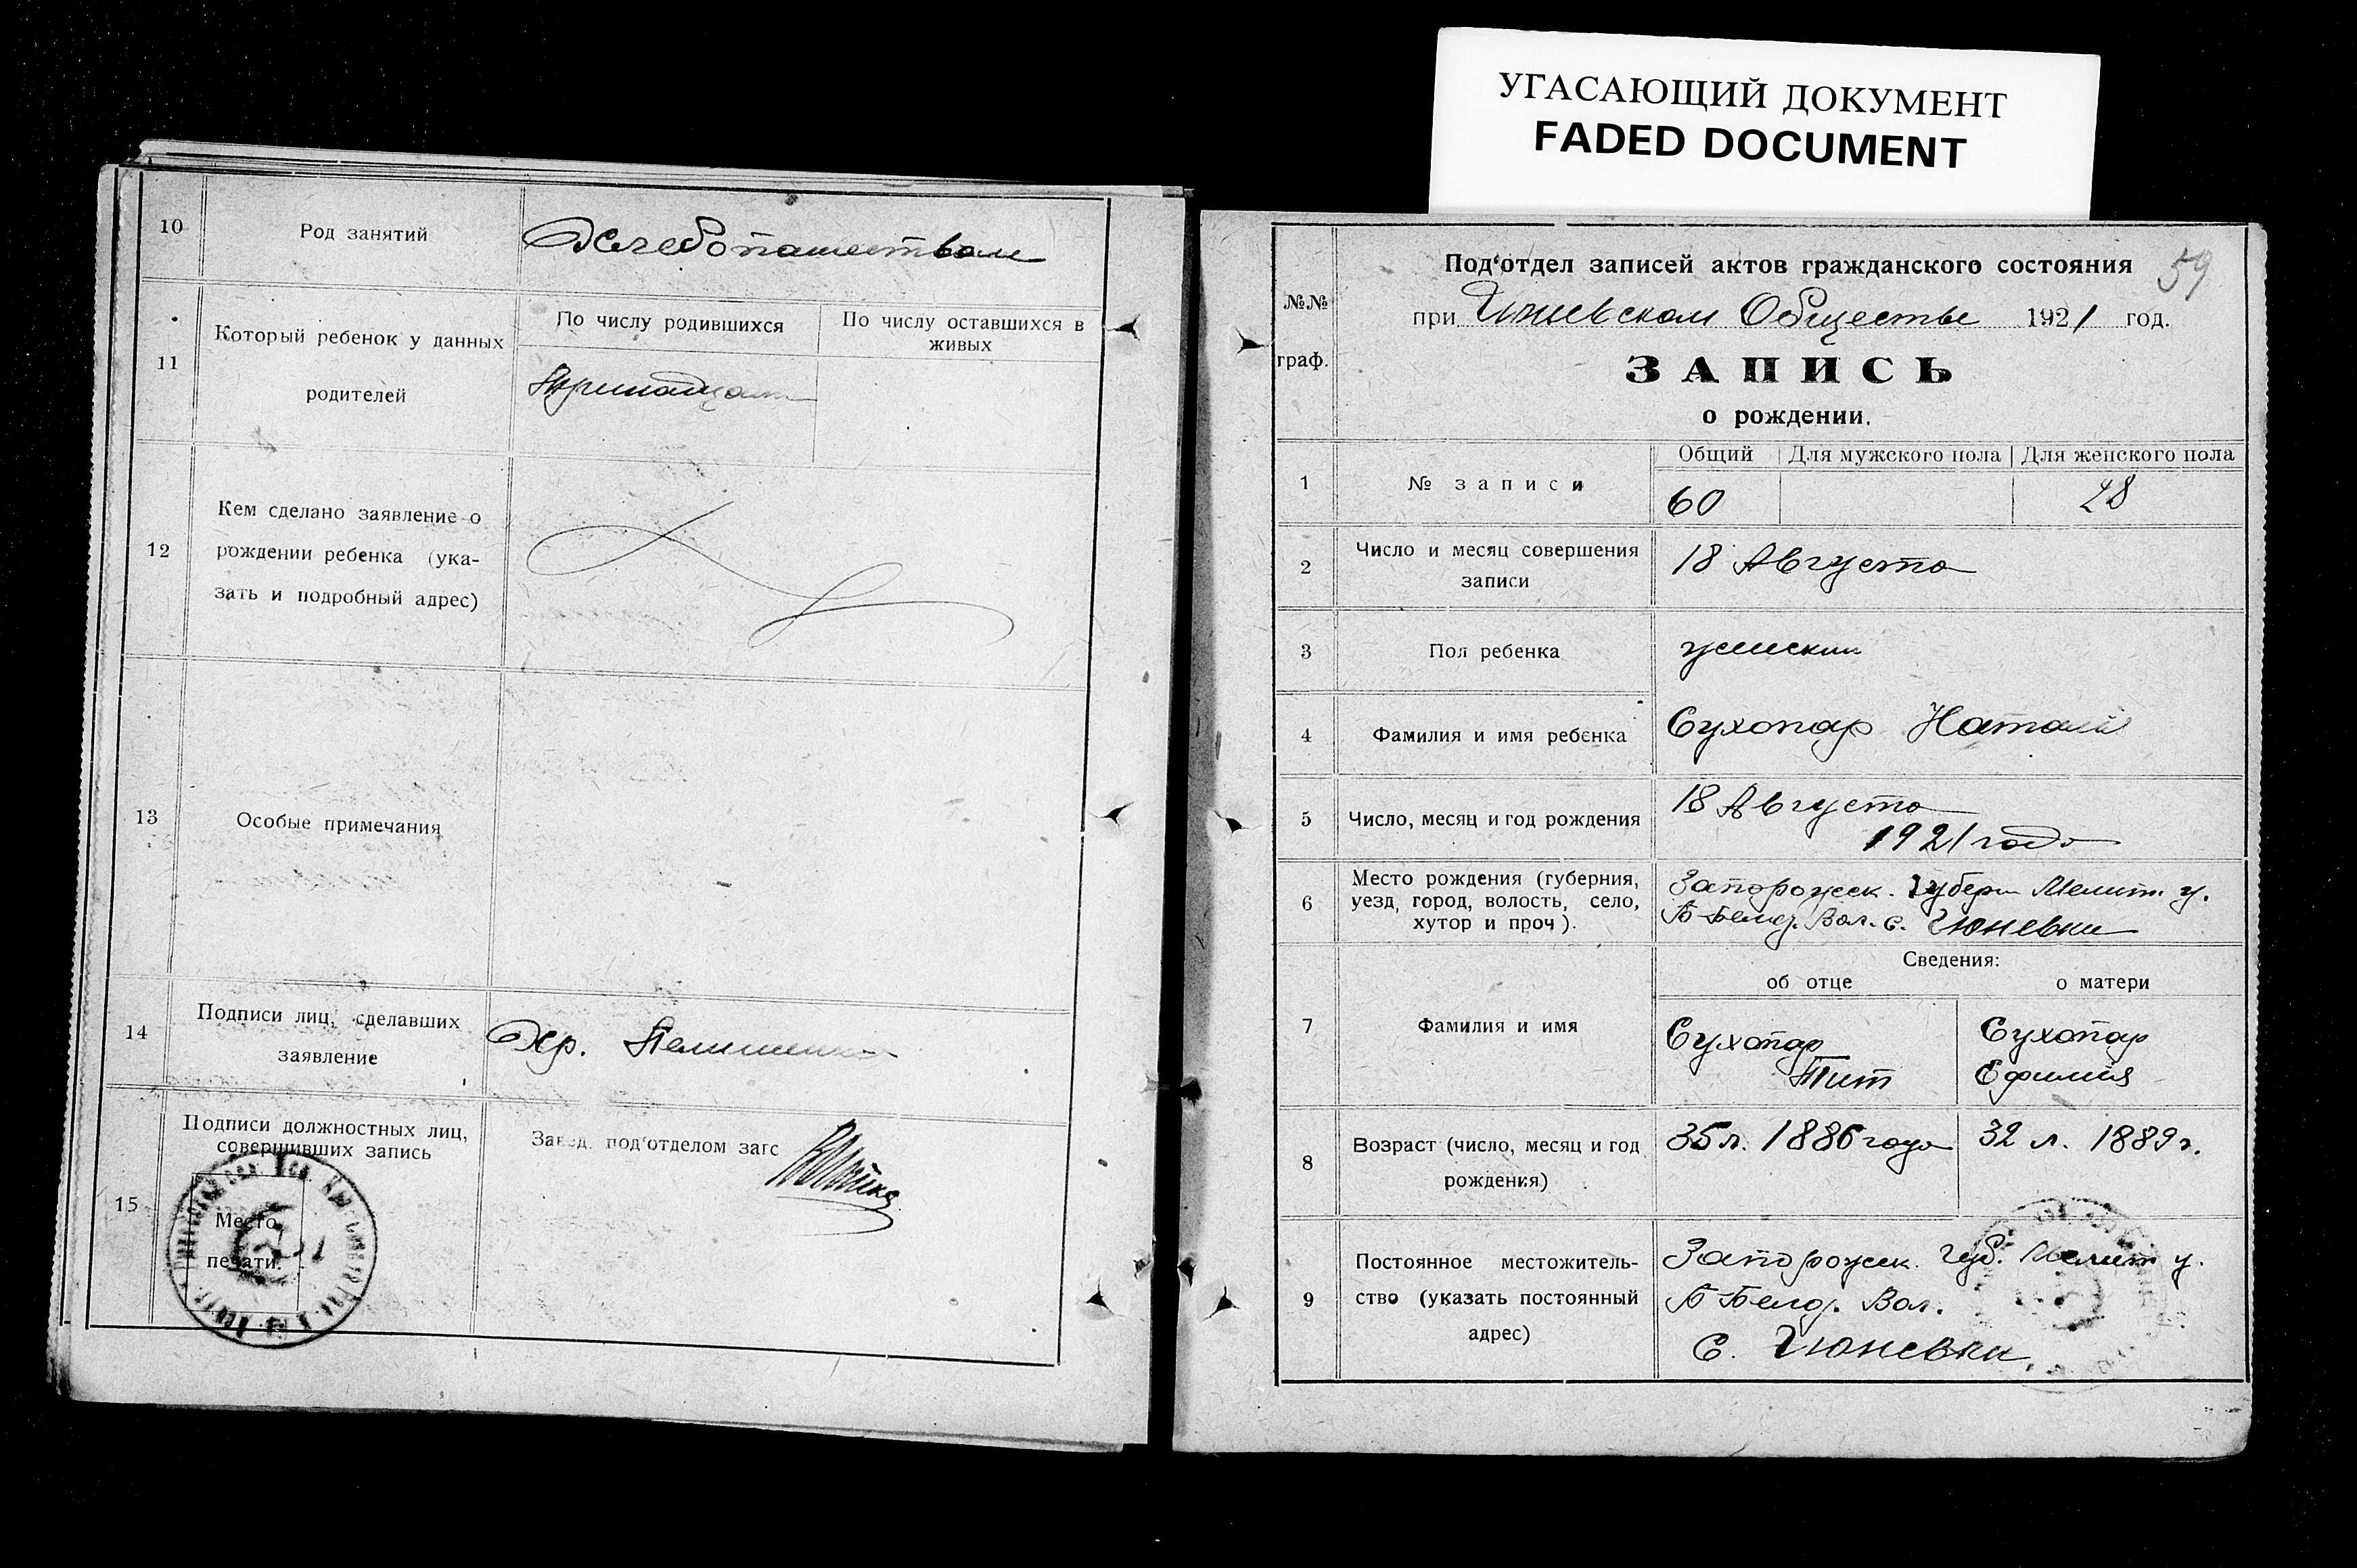 УГАСАЮЩИЙ ДОКУМЕНТ
FADED DOCUMENT
10
Род занятий
Хлебопашеством
11
Который ребенок у данных
родителей
По числу родившихся
По числу оставшихся в
живых
12
Кем сделано заявление о
рождении ребенка (ука-
зать и подробный адрес)
13
Особые примечания
14
Подписи лиц, сделавших
заявление
Хр.
15
Подписи должностных лиц,
совершивших запись
Завед. под'отделом загс
Место
печати.
№№
граф.
Под'отдел записей актов гражданского состояния
59
при Гюневском Обществе 1921 год.
ЗАПИСЬ
о рождении.
1
№ записи
Общий
Для мужского пола
Для женского пола
60
28
2
Число и месяц совершения
записи
18 Августа
3
Пол ребенка
4
Фамилия и имя ребенка
Сухопар
5
Число, месяц и год рождения
18 Августа
1921 года
6
Место рождения (губерния,
уезд, город, волость, село,
хутор и проч).
Запорожск. Губерн Мелит. у.
Вол. с. Гюневки
Сведения:
об отце
о матери
7
Фамилия и имя
Сухопар
Тит
Сухопар
Ефимия
8
Возраст (число, месяц и год
рождения)
35 л. 1886 года
32 л. 1889 г.
9
Постоянное местожитель-
ство (указать постоянный
адрес)
Запорожск. Губ. Мелит у.
Вол.
С. Гюневки